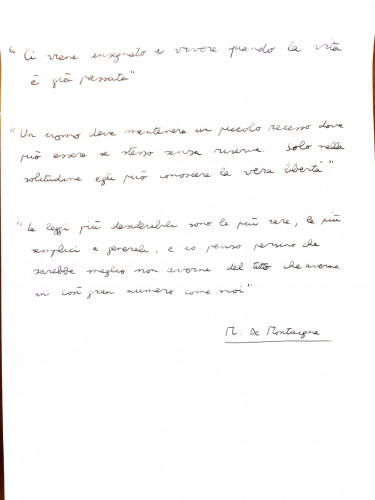 "Ci viene insegnato a vivere quando la vita
è già passata"
"Un uomo deve mantenere un piccolo recesso dove
può essere se stesso senza riserve. Solo nella
solitudine egli può conoscere la vera libertà"
"Le leggi più desiderabili sono le più rare, le più
semplici e generali, e io penso persino che
sarebbe meglio non averne del tutto che averne
in così gran numero come noi"
M. De Montaigne